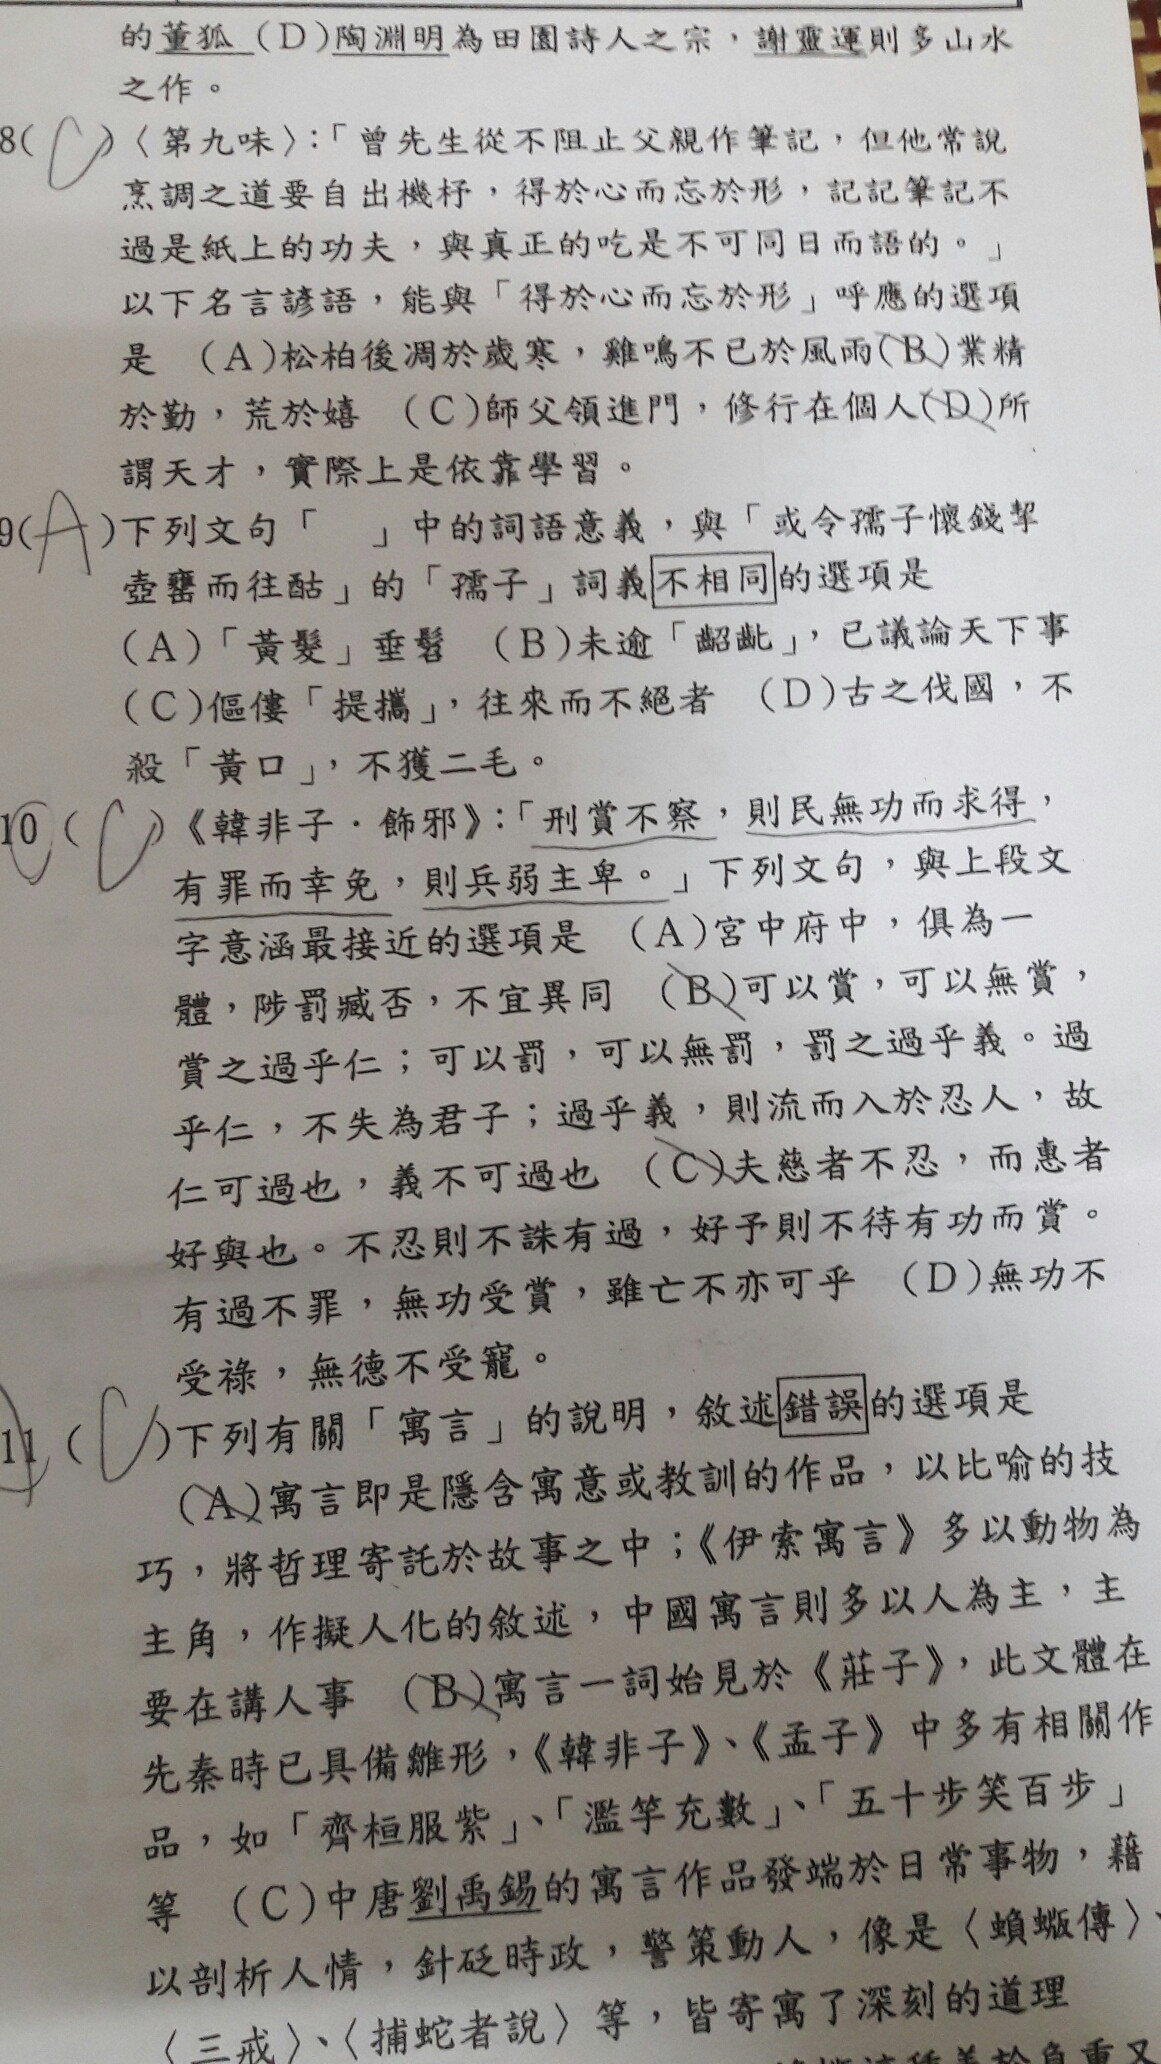 的董狐 (D)陶淵明為田園詩人之宗，謝靈運則多山水
之作。
8(C)〈第九味〉：「曾先生從不阻止父親作筆記，但他常說
烹調之道要自出機杼，得於心而忘於形，記記筆記不
過是紙上的功夫，與真正的吃是不可同日而語的。」
以下名言諺語，能與「得於心而忘於形」呼應的選項
是 (A)松柏後凋於歲寒，雞鳴不已於風雨(B)業精
於勤，荒於嬉 (C)師父領進門，修行在個人(D)所
謂天才，實際上是依靠學習。
9(A)下列文句「　」中的詞語意義，與「或令孺子懷錢挈
壺罋而往酤」的「孺子」詞義不相同的選項是
(A)「黃髮」垂髫 (B)未逾「齠齔」，已議論天下事
(C)傴僂「提攜」，往來而不絕者 (D)古之伐國，不
殺「黃口」，不獲二毛。
10(C)《韓非子．飾邪》：「刑賞不察，則民無功而求得，
有罪而幸免，則兵弱主卑。」下列文句，與上段文
字意涵最接近的選項是 (A)宮中府中，俱為一
體，陟罰臧否，不宜異同 (B)可以賞，可以無賞，
賞之過乎仁；可以罰，可以無罰，罰之過乎義。過
乎仁，不失為君子；過乎義，則流而入於忍人，故
仁可過也，義不可過也 (C)夫慈者不忍，而惠者
好與也。不忍則不誅有過，好予則不待有功而賞。
有過不罪，無功受賞，雖亡不亦可乎 (D)無功不
受祿，無德不受寵。
11(C)下列有關「寓言」的說明，敘述錯誤的選項是
(A)寓言即是隱含寓意或教訓的作品，以比喻的技
巧，將哲理寄託於故事之中；《伊索寓言》多以動物為
主角，作擬人化的敘述，中國寓言則多以人為主，主
要在講人事 (B)寓言一詞始見於《莊子》，此文體在
先秦時已具備雛形，《韓非子》、《孟子》中多有相關作
品，如「齊桓服紫」、「濫竽充數」、「五十步笑百步」
等 (C)中唐劉禹錫的寓言作品發端於日常事物，藉
以剖析人情，針砭時政，警策動人，像是〈蝜蝂傳〉、
〈三戒〉、〈捕蛇者說〉等，皆寄寓了深刻的道理